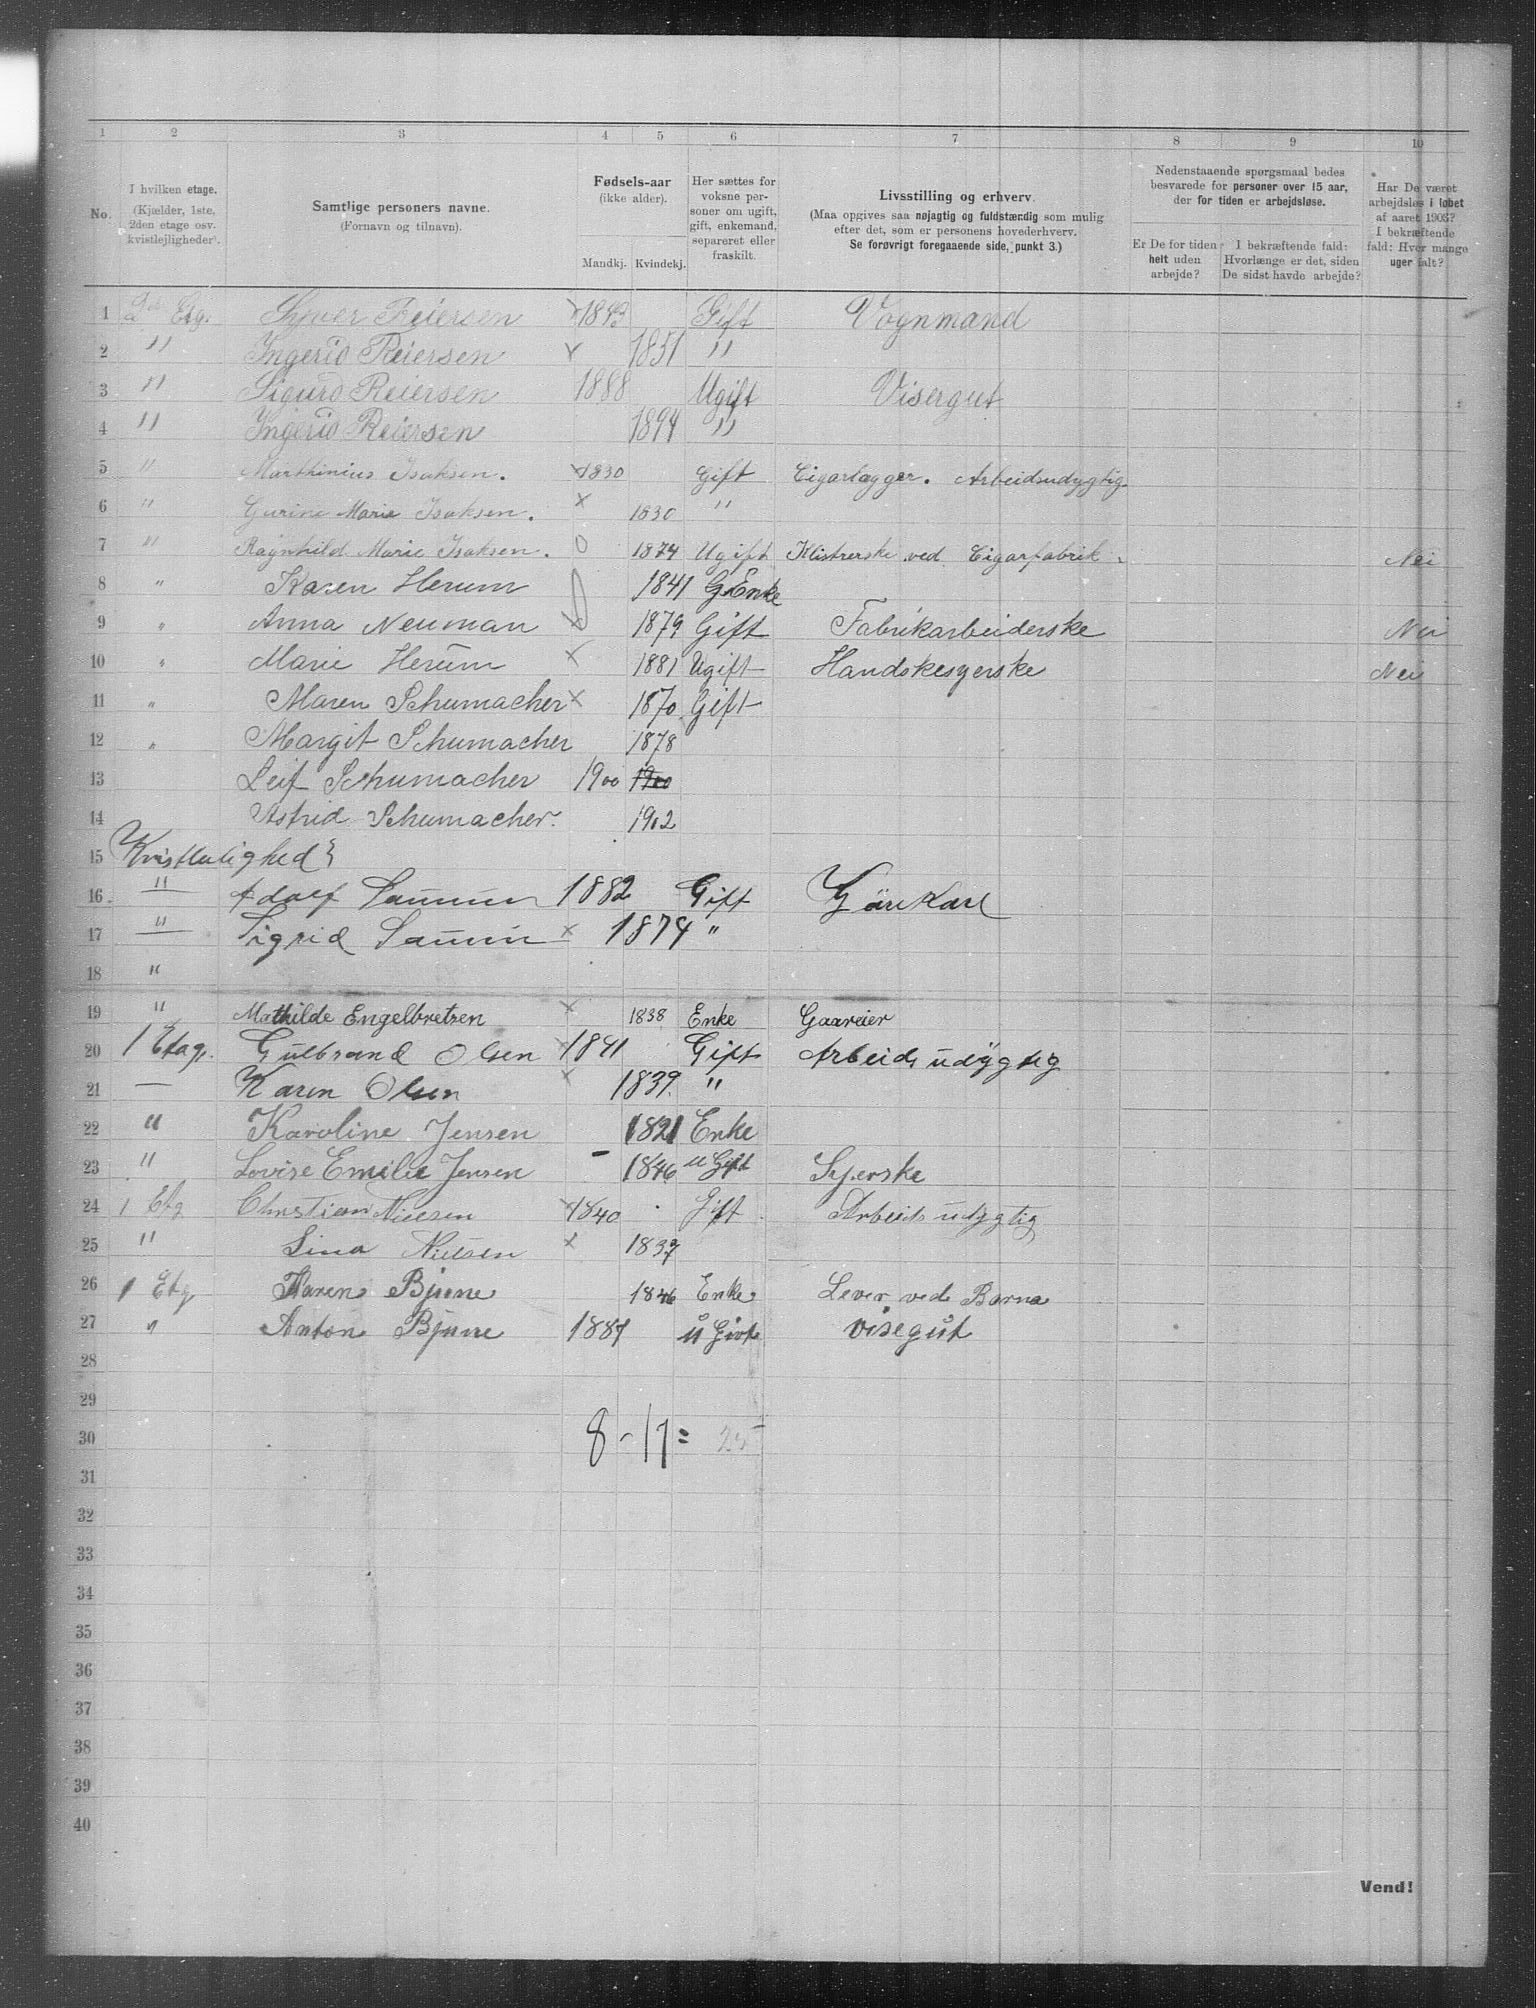 1 2 3 4 5 6 7 8 9 10
No.
I hvilken etage. (Kjælder, 1ste, 2den etage osv. kvistlejligheder).
Samtlige personers navne. (Fornavn og tilnavn).
Fødsels-aar (ikke alder). Mandkj. Kvindekj.
Her sættes for voksne personer om ugift, gift, enkemand, separeret eller fraskilt.
Livsstilling og erhverv. (Maa opgives saa nøjagtig og fuldstændig som mulig efter det, som er personens hovederhverv. Se forøvrigt foregaaende side, punkt 3.)
Nedenstaaende spørgsmaal bedes besvarede for personer over 15 aar, der for tiden er arbejdsløse.
Er De for tiden helt uden arbejde?
I bekræftende fald: Hvorlænge er det, siden De sidst havde arbejde?
Har De været arbejdsløs i løbet af aaret 1903? I bekræftende fald: Hvor mange uger ialt?
1 2 Etg. Syver Reiersen × Gift Vognmand
2 " Ingerid Reiersen × 1851 "
3 " Sigurd Reiersen 1888 Ugift Visergut
4 " Ingerid Reiersen 1894 "
5 " Marthinius Isaksen. ×1830 Gift Cigarlægger. Arbeidsudygtig
6 " Gurine Marie Isaksen. × 1830 "
7 " Ragnhild Marie Isaksen. O 1874 Ugift Klistrerske ved Cigarfabrik. Nei
8 " Karen Herum 1841 Enke
9 " Anna Neuman × 1879 Gift Fabrikarbeiderske Nei
10 " Marie Herum × 1881 Ugift Handskesyerske Nei
11 " Maren Schumacher × 1870 Gift
12 " Margit Schumacher 1878
13 Leif Schumacher 1900 1900
14 Astrid Schumacher. 1902
15 Kvistleilighed
16 " Adolf 1882 Gift
17 " Sigrid × 1874 "
18 "
19 " Mathilde Engelbretsen × 1838 Enke Gaareier
20 1 Etage. Gulbrand Olsen ×1841 Gift Arbeidsudygtig
21 — Karen Olsen × 1839. "
22 " Karoline Jensen 1821 Enke
23 " Lovise Emilie Jensen - 1846 u Gift Syerske
24 1 Etg Christian Nielsen ×1840 Gift Arbeidsudygtig
25 " Lina Nielsen × 1837
26 1 Etg Karen Bjune 1846 Enke Lever ved Barna
27 " Anton Bjune 1887 u Givt visegut
28
29
30 8 - 17 = 25
31
32
33
34
35
36
37
38
39
40
Vend!